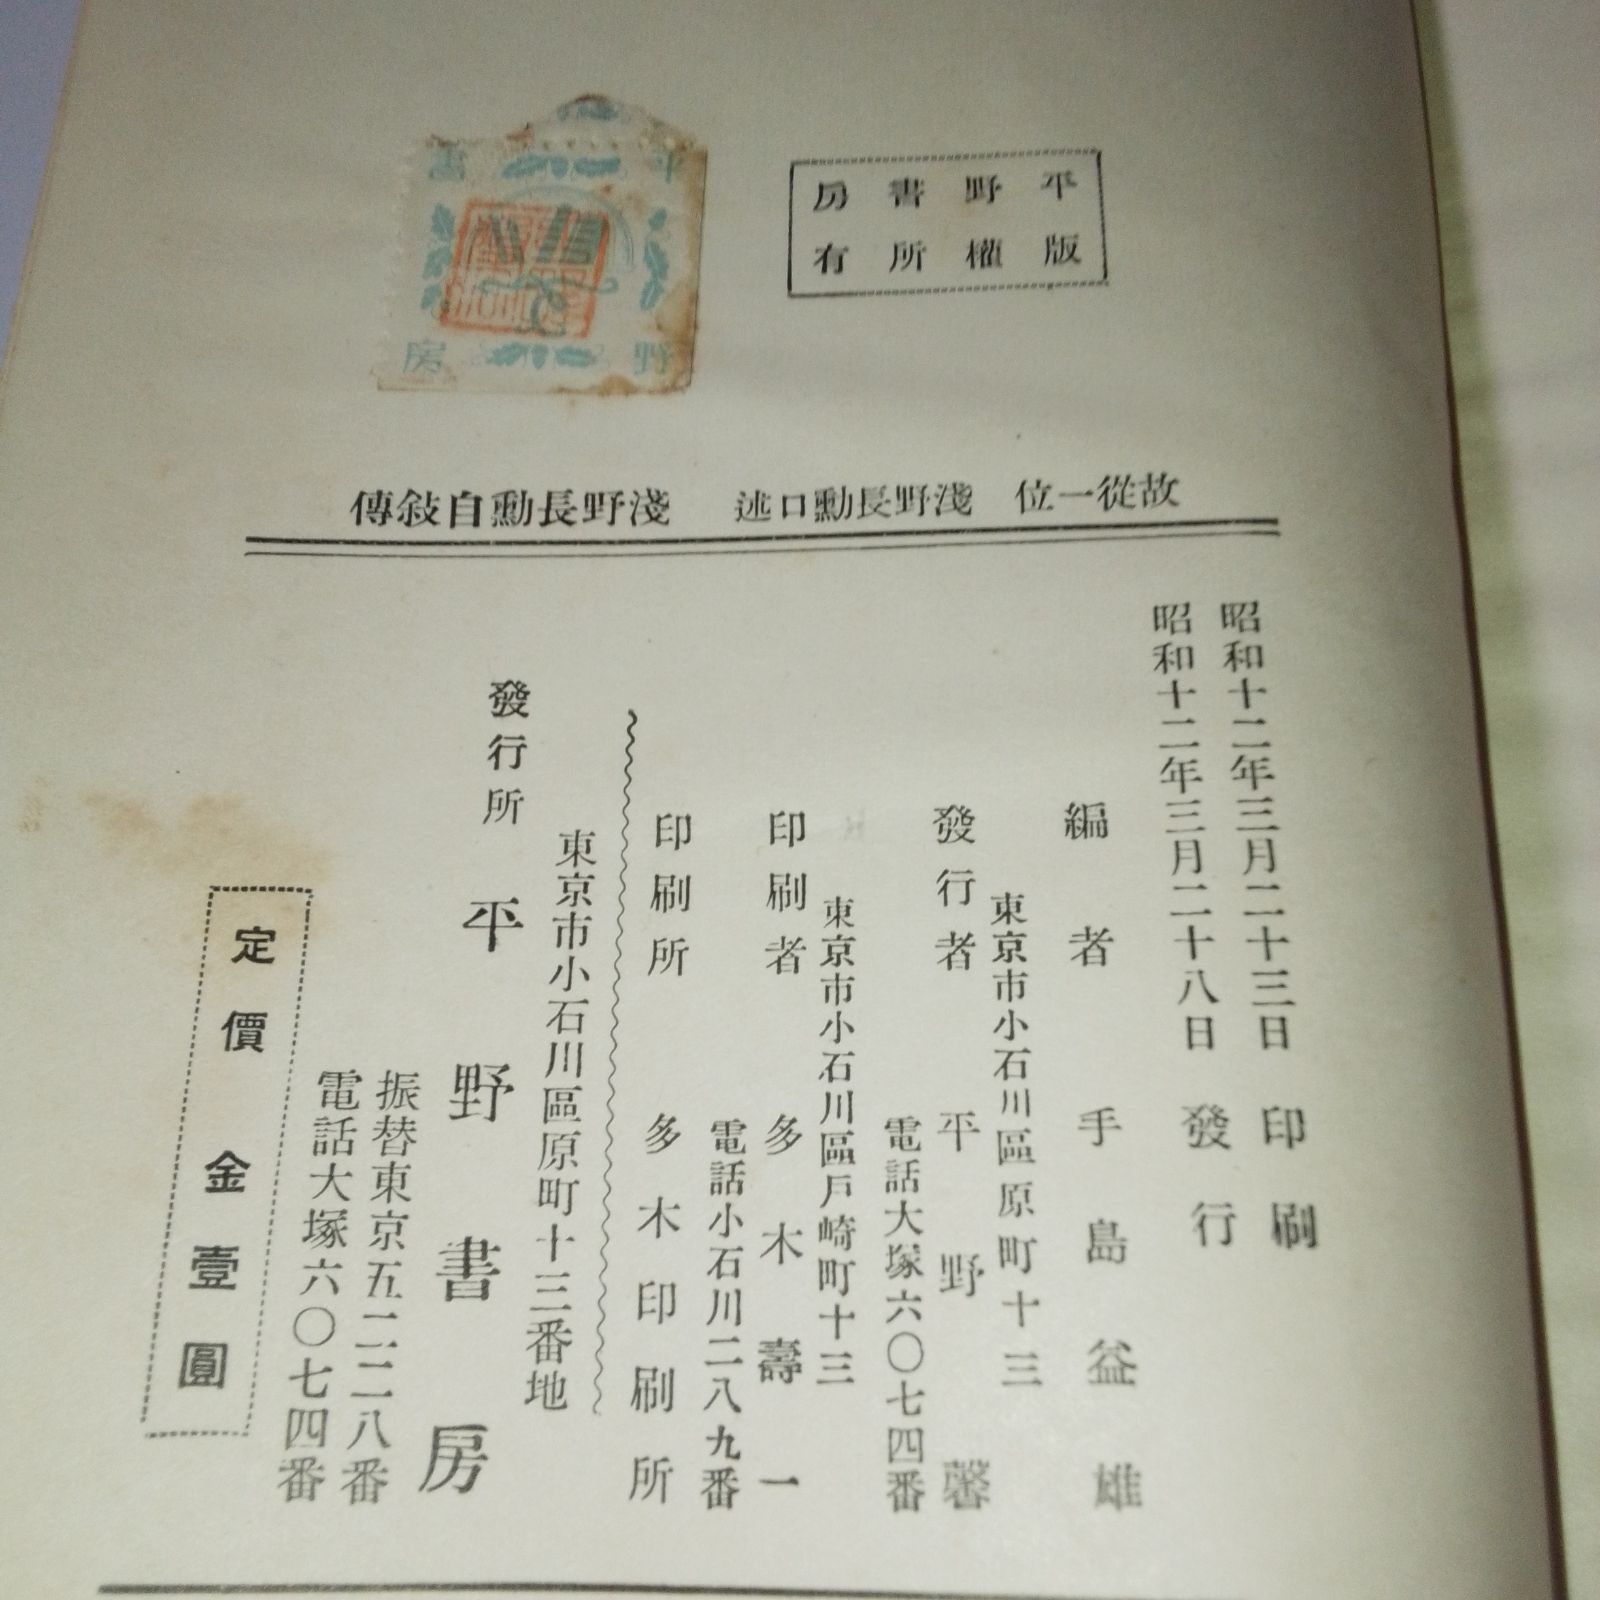 平野書房
版權所有
平野書房
故從一位 淺野長勳口述 淺野長勳自敍傳
昭和十二年三月二十三日 印刷
昭和十二年三月二十八日 發行
編者 手島益雄
東京市小石川區原町十三
發行者 平野馨
電話大塚六〇七四番
東京市小石川區戸崎町十三
印刷者 多木壽一
電話小石川二八九番
印刷所 多木印刷所
東京市小石川區原町十三番地
發行所 平野書房
振替東京五二二八番
電話大塚六〇七四番
定價金壹圓